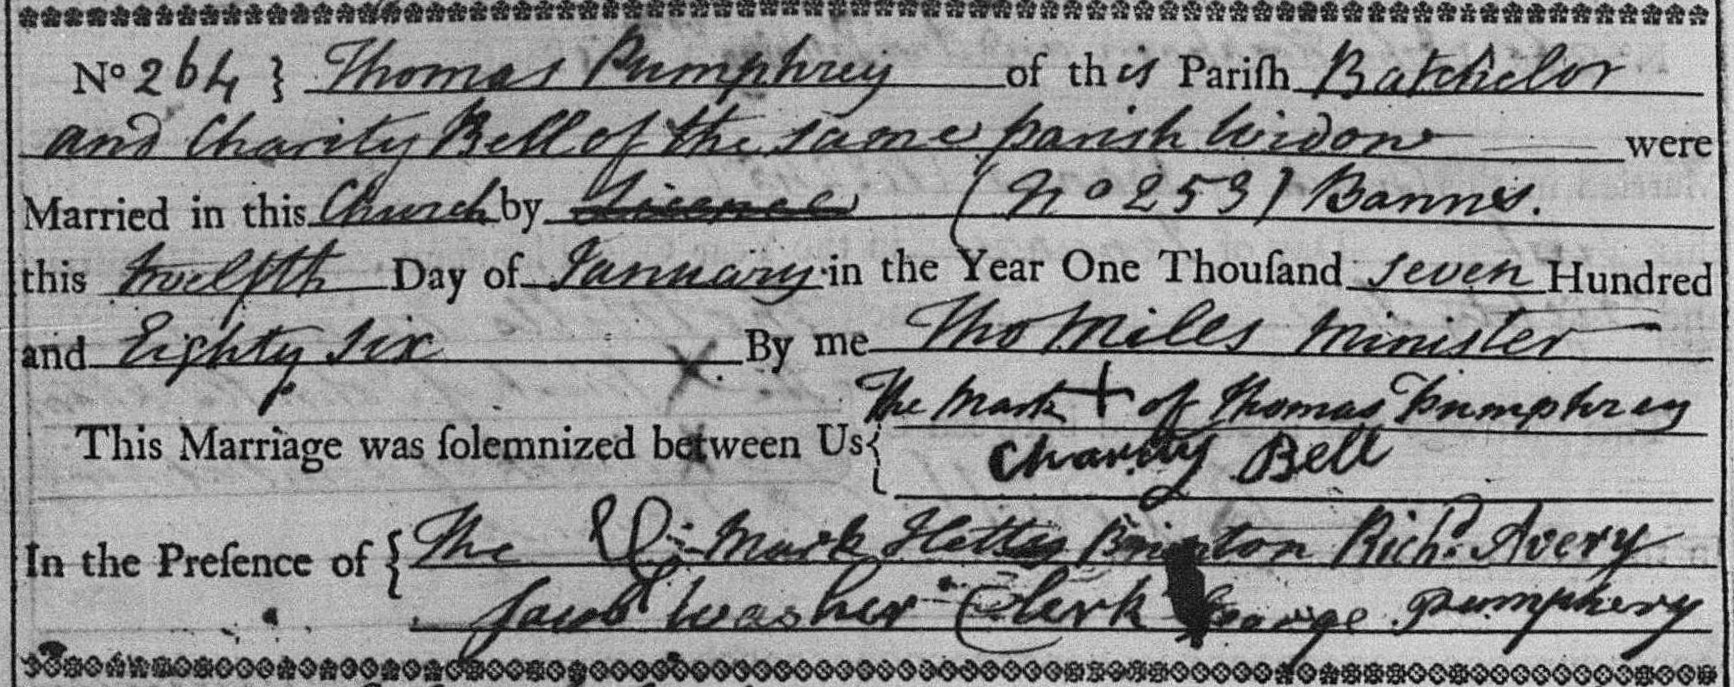 No 264 } Thomas Pumphrey of this Pariſh Batchelor
and Charity Bell of the same parish Widow were
Married in this Church by Licence (No 253) Banns.
this twelfth Day of January in the Year One Thouſand seven Hundred
and Eighty Six By me Tho Miles Minister
The Mark + of Thomas Pumphrey
This Marriage was ſolemnized between Us {
Charity Bell
In the Preſence of { The Mark Hettey Brinton Richd. Avery
Jacob Washer Clerk George Pumphery